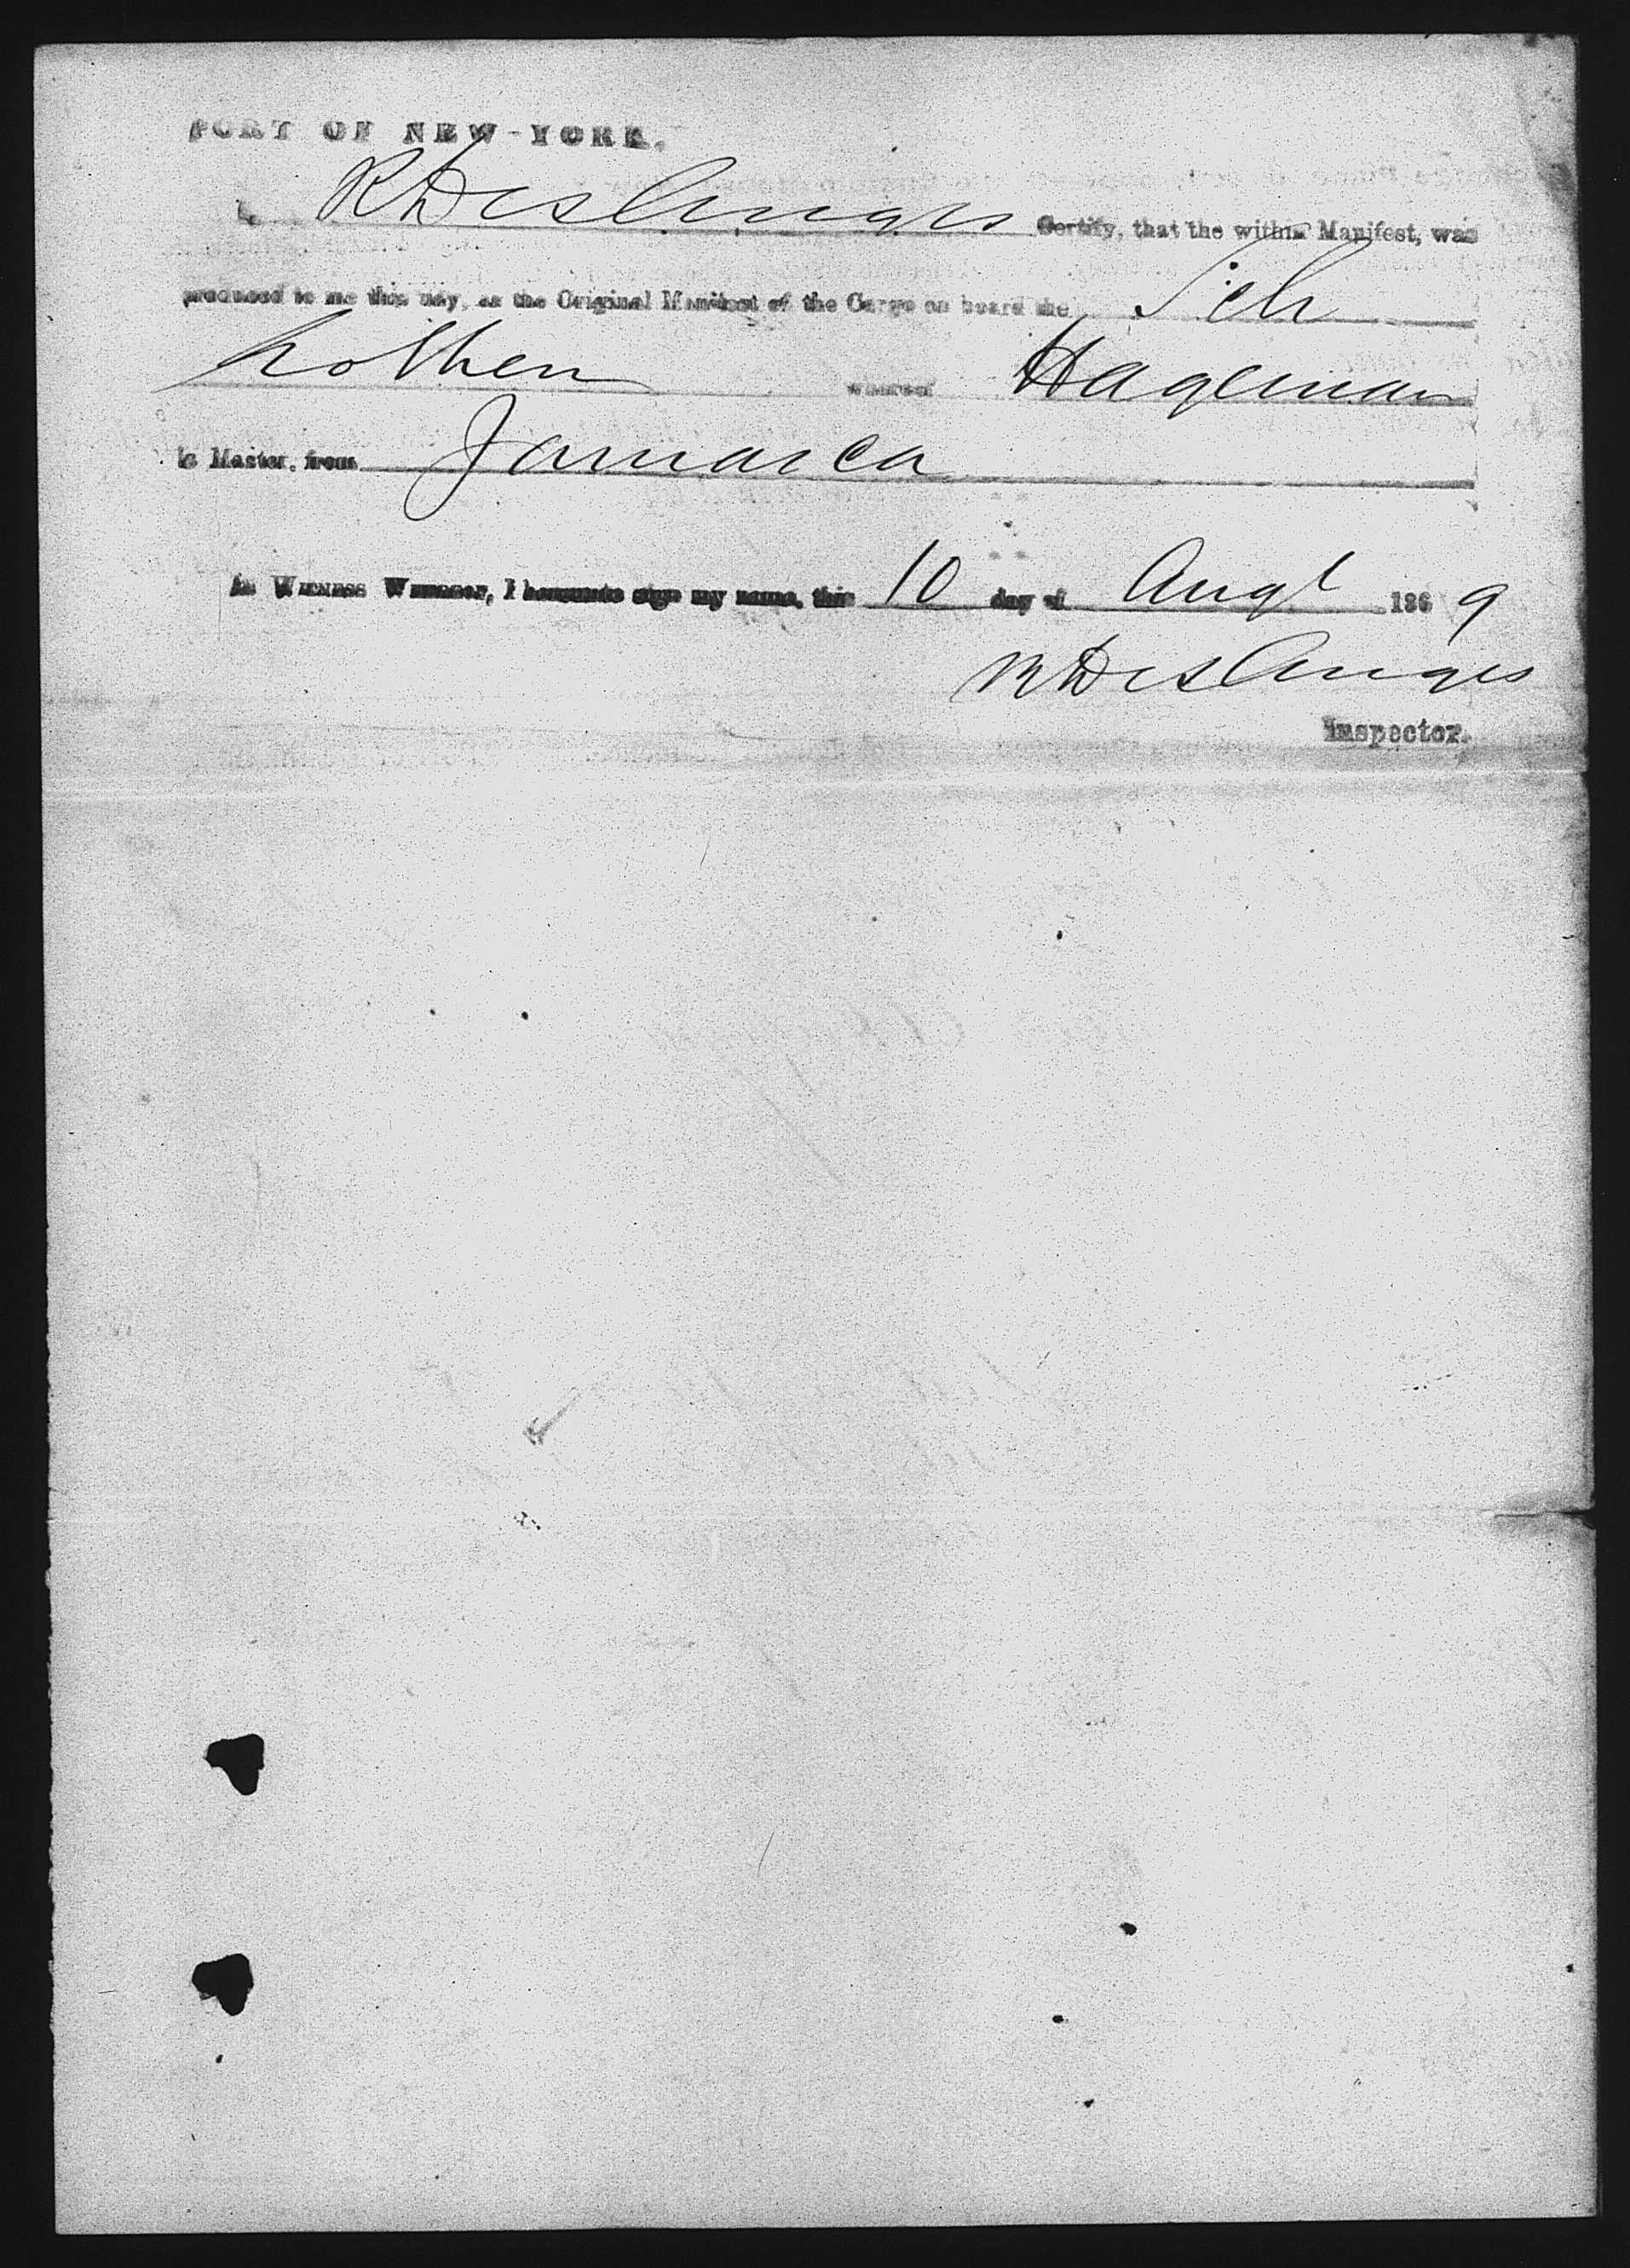 PORT OF NEW-YORK.
I, R DesAnges Certify, that the within Manifest, was
produced to me this day, as the Original Manifest of the Cargo on board the Sch
Lothen whereof Hageman
is Master, from Jamaica
In Witness Whereof, I hereunto sign my name, this 10 day of Augt 1869
R DesAnges
Inspector.